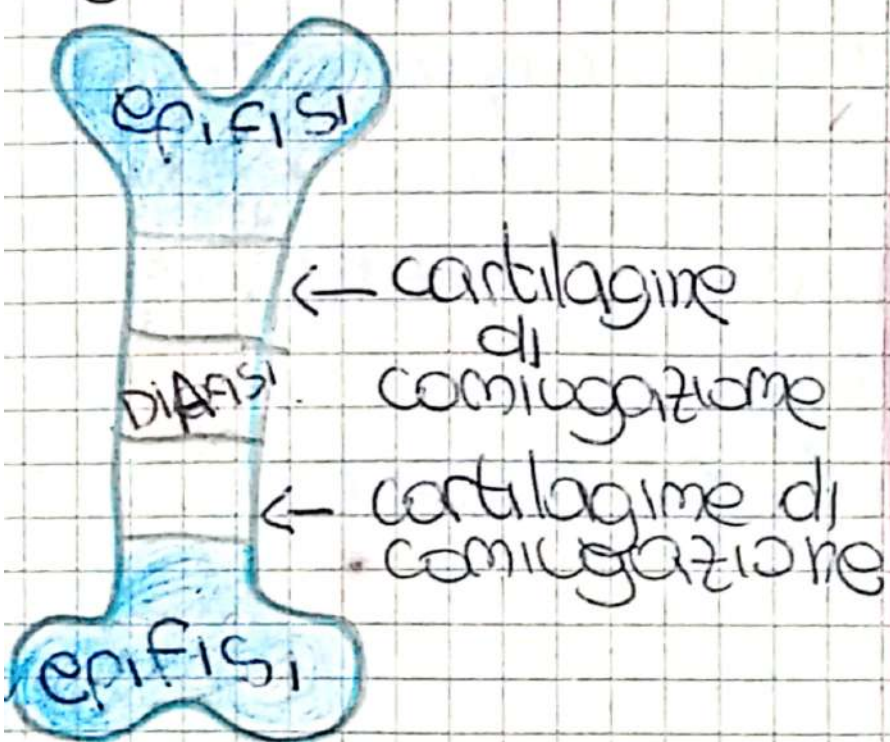 epifisi
← cartilagine
di
coniugazione
DiAFISI
← cartilagine di
coniugazione
epifisi